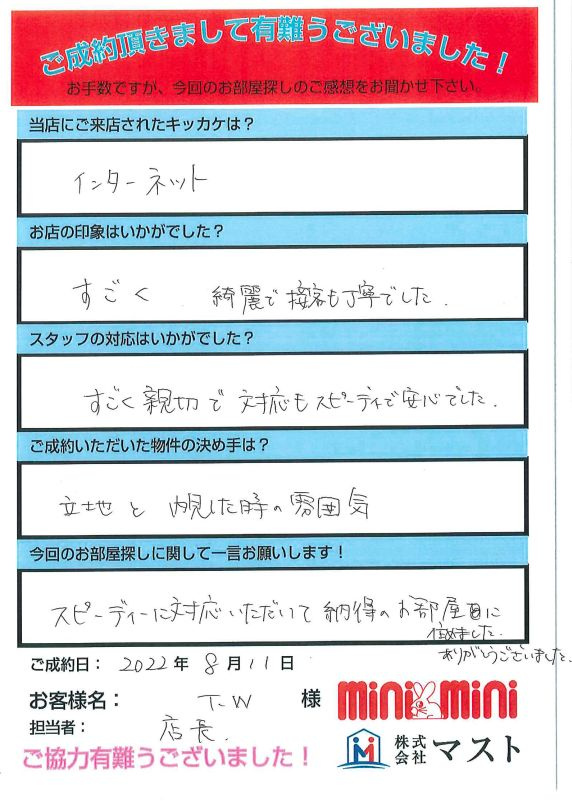 ご成約頂きまして有難うございました!
お手数ですが、今回のお部屋探しのご感想をお聞かせ下さい。
当店にご来店されたキッカケは?
インターネット
お店の印象はいかがでした?
すごく 綺麗で接客も丁寧でした.
スタッフの対応はいかがでした?
すごく親切で対応もスピーディで安心でした.
ご成約いただいた物件の決め手は?
立地と内見した時の雰囲気
今回のお部屋探しに関して一言お願いします!
スピーディーに対応いただいて納得のお部屋に
住めました.
ありがとうございました.
ご成約日: 2022年 8月11日
お客様名: T.W 様
minimini
担当者: 店長.
株式会社マスト
ご協力有難うございました!